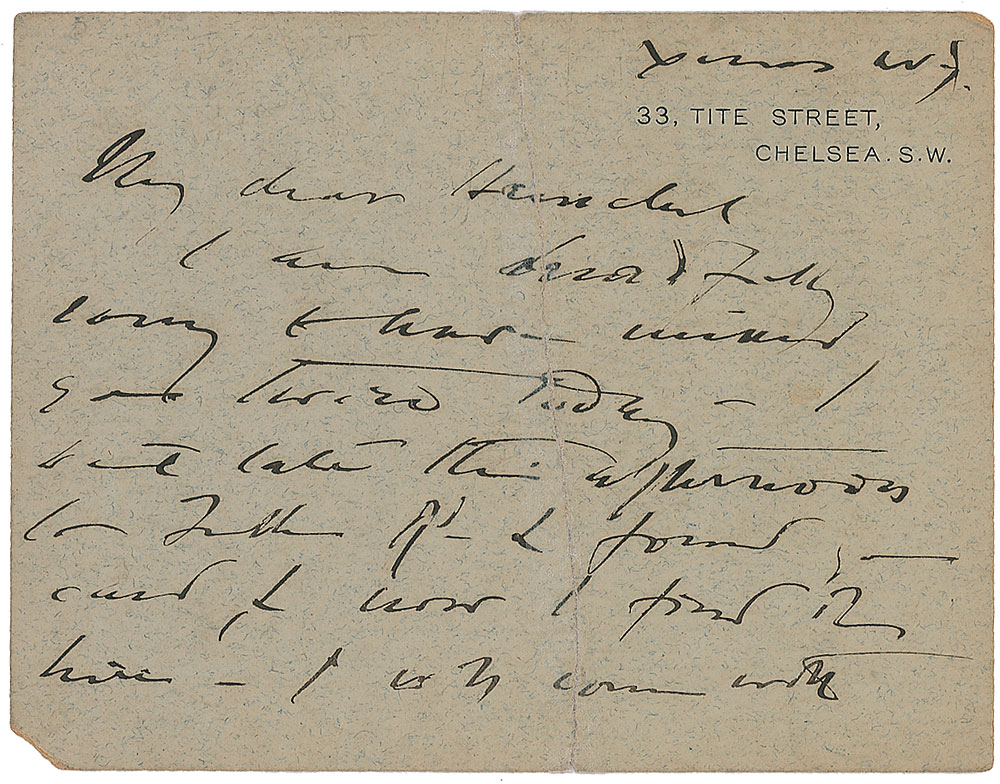 33, TITE STREET,
CHELSEA. S.W.
My dear
I am dreadfully
sorry to have missed
you twice today - I
late this afternoon
to & found
card & now I find it
here - I will come with